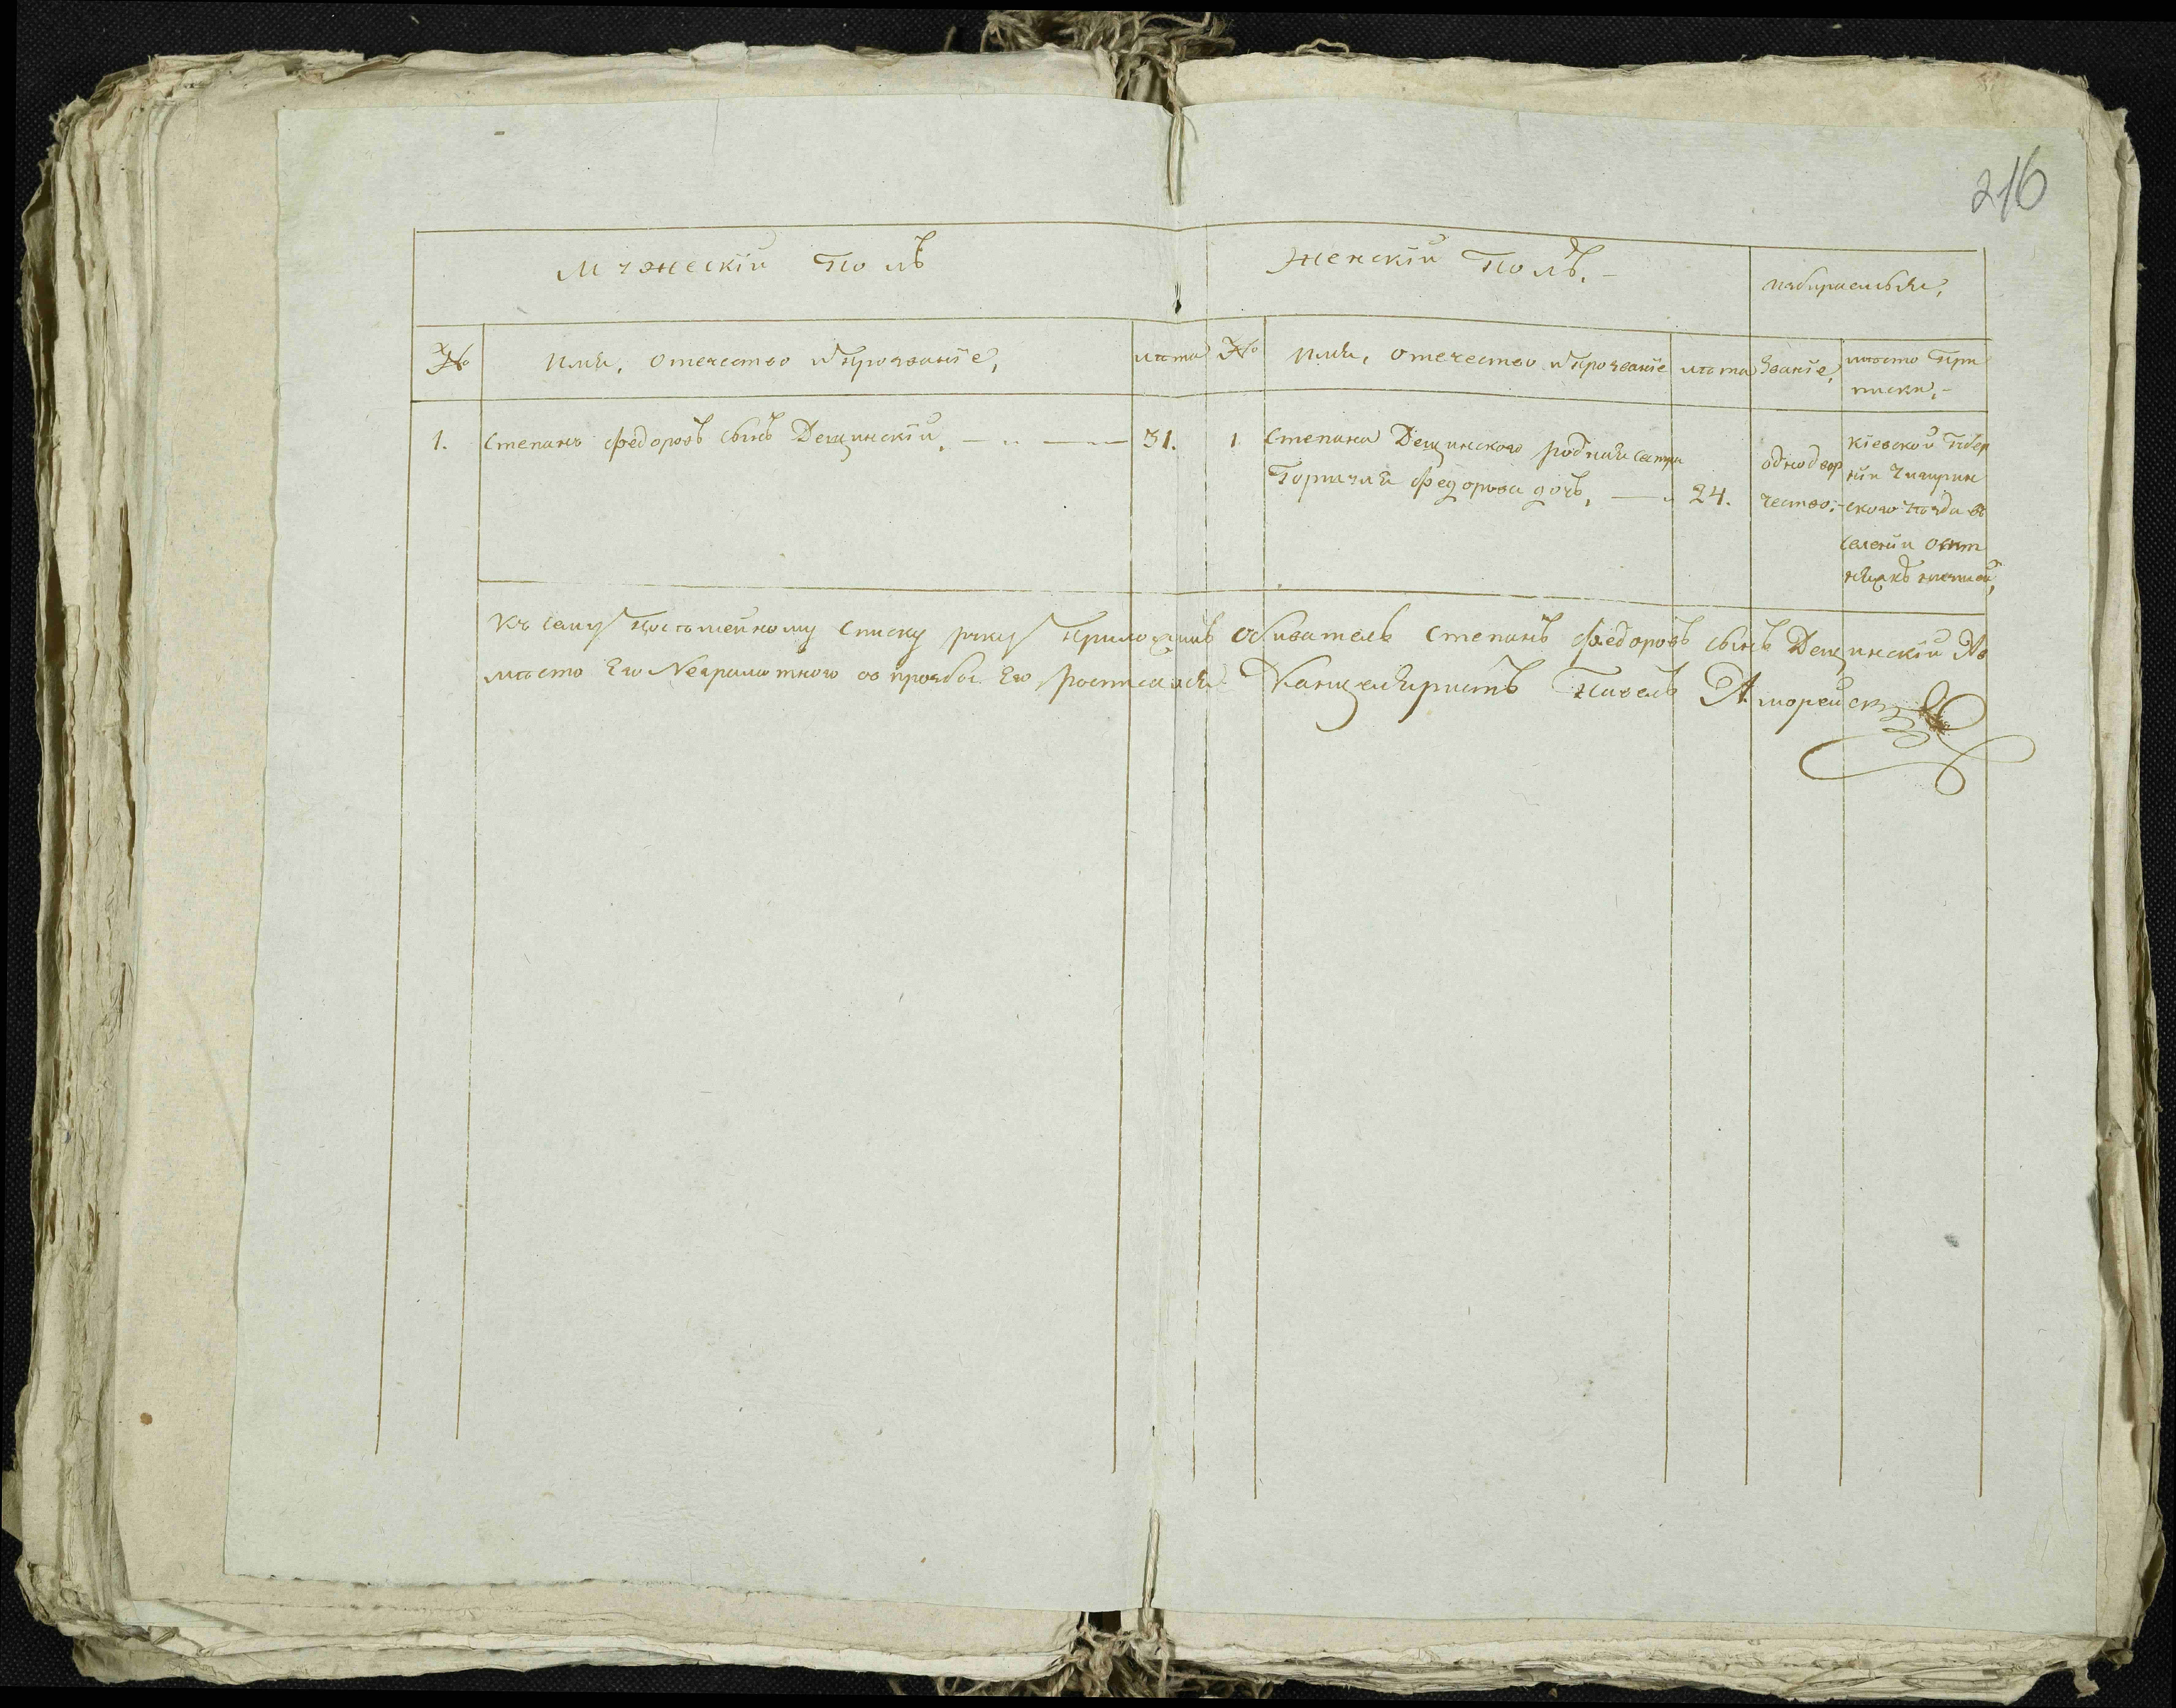 216
Мужескій Полъ
Женскій Полъ.
избираемыя,
№
Имя, отечество и прозваніе,
лѣта
№
Имя, отечество и прозваніе
лѣта
Званіе,
мѣсто При
писки,
1.
Степанъ Федоровъ сынъ Дещинскій,
31.
1.
Степана Дещинского родная сестра
Федорова дочь,
24.
однодвор
чество
Кіевской Губер
ніи Чигирин
ского уѣзда въ
селеніи
Къ сему посемейному списку руку приложилъ обиватель Степанъ Федоровъ сынъ Дещинскій А в
мѣсто Его Неграмотного по прозбы Его росписался Канцеляристъ Павелъ